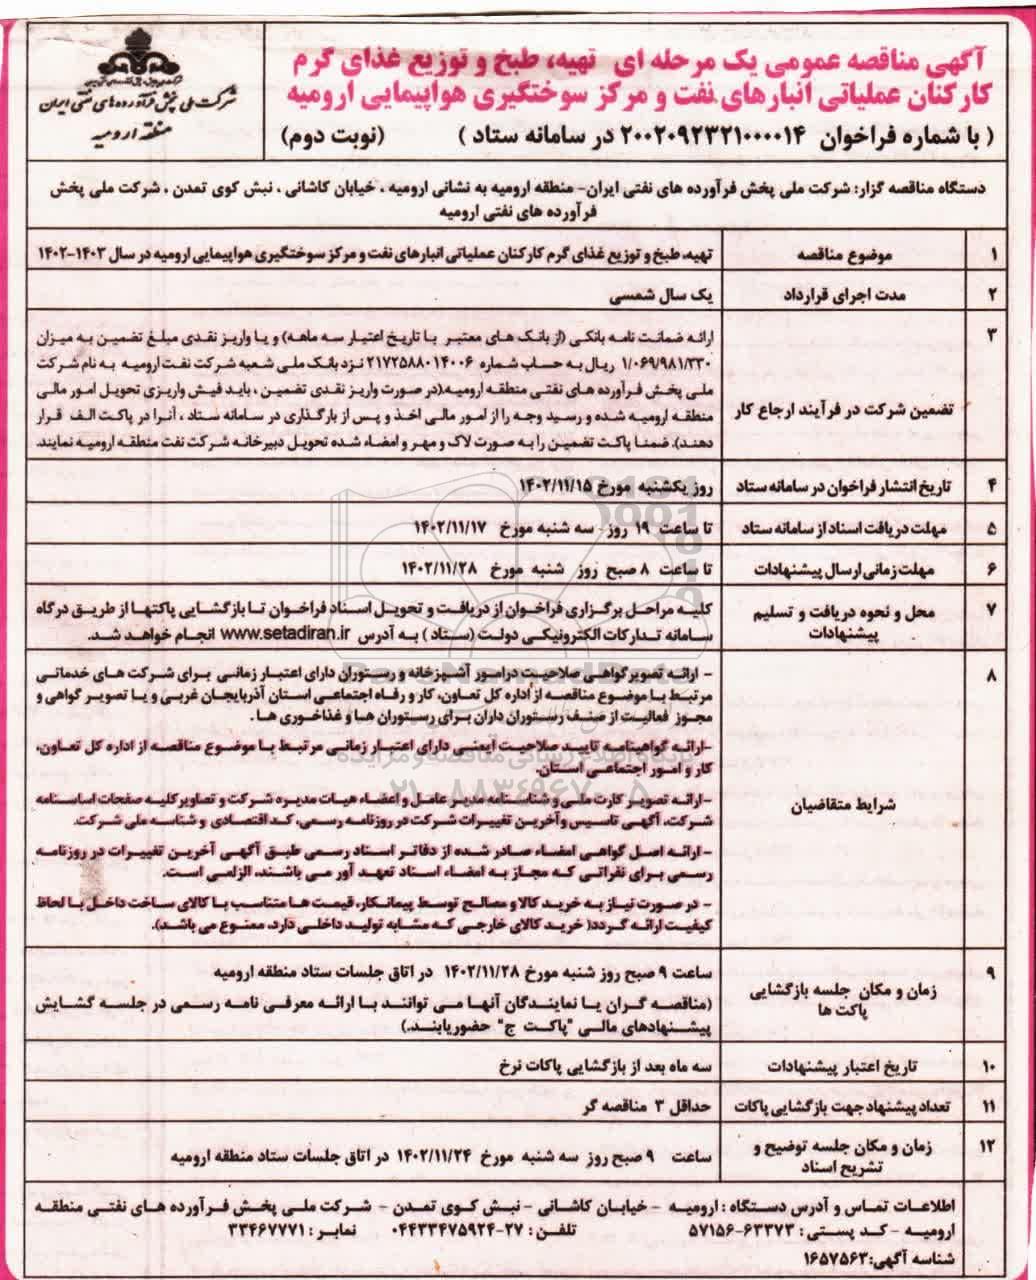 آگهی مناقصه عمومی یک مرحله ای تهیه، طبخ و توزیع غذای گرم
کارکنان عملیاتی انبارهای نفت و مرکز سوختگیری هواپیمایی ارومیه
( با شماره فراخوان ۲۰۰۲۰۹۲۳۲۱۰۰۰۰۱۴ در سامانه ستاد ) (نوبت دوم)
شرکت ملی پخش فرآورده‌های نفتی ایران
منطقه ارومیه
دستگاه مناقصه گزار: شرکت ملی پخش فرآورده های نفتی ایران- منطقه ارومیه به نشانی ارومیه ، خیابان کاشانی ، نبش کوی تمدن ، شرکت ملی پخش
فرآورده های نفتی ارومیه
۱ موضوع مناقصه تهیه، طبخ و توزیع غذای گرم کارکنان عملیاتی انبارهای نفت و مرکز سوختگیری هواپیمایی ارومیه در سال ۱۴۰۳-۱۴۰۲
۲ مدت اجرای قرارداد یک سال شمسی
۳ تضمین شرکت در فرآیند ارجاع کار
ارائه ضمانت نامه بانکی (از بانک های معتبر با تاریخ اعتبار سه ماهه) و یا واریز نقدی مبلغ تضمین به میزان
۱/۰۶۹/۹۸۱/۳۳۰ ریال به حساب شماره ۲۱۷۲۵۸۸۰۱۴۰۰۶ نزد بانک ملی شعبه شرکت نفت ارومیه به نام شرکت
ملی پخش فرآورده های نفتی منطقه ارومیه.(در صورت واریز نقدی تضمین ، باید فیش واریزی تحویل امور مالی
منطقه ارومیه شده و رسید وجه را از امور مالی اخذ و پس از بارگذاری در سامانه ستاد ، آنرا در پاکت الف قرار
دهند). ضمنا پاکت تضمین را به صورت لاک و مهر و امضاء شده تحویل دبیرخانه شرکت نفت منطقه ارومیه نمایند.
۴ تاریخ انتشار فراخوان در سامانه ستاد روز یکشنبه مورخ ۱۴۰۲/۱۱/۱۵
۵ مهلت دریافت اسناد از سامانه ستاد تا ساعت ۱۹ روز سه شنبه مورخ ۱۴۰۲/۱۱/۱۷
۶ مهلت زمانی ارسال پیشنهادات تا ساعت ۸ صبح روز شنبه مورخ ۱۴۰۲/۱۱/۲۸
۷ محل و نحوه دریافت و تسلیم
پیشنهادات
کلیه مراحل برگزاری فراخوان از دریافت و تحویل اسناد فراخوان تا بازگشایی پاکتها از طریق درگاه
سامانه تدارکات الکترونیکی دولت (ستاد ) به آدرس www.setadiran.ir انجام خواهد شد.
۸ شرایط متقاضیان
- ارائه تصویر گواهی صلاحیت در امور آشپزخانه و رستوران دارای اعتبار زمانی برای شرکت های خدماتی
مرتبط با موضوع مناقصه از اداره کل تعاون، کار و رفاه اجتماعی استان آذربایجان غربی و یا تصویر گواهی و
مجوز فعالیت از صنف رستوران داران برای رستوران ها و غذاخوری ها .
-ارائه گواهینامه تایید صلاحیت ایمنی دارای اعتبار زمانی مرتبط با موضوع مناقصه از اداره کل تعاون،
کار و امور اجتماعی استان.
-ارائه تصویر کارت ملی و شناسنامه مدیر عامل و اعضاء هیات مدیره شرکت و تصاویر کلیه صفحات اساسنامه
شرکت، آگهی تاسیس و آخرین تغییرات شرکت در روزنامه رسمی، کد اقتصادی و شناسه ملی شرکت.
- ارائه اصل گواهی امضاء صادر شده از دفاتر اسناد رسمی طبق آگهی آخرین تغییرات در روزنامه
رسمی برای نفراتی که مجاز به امضاء اسناد تعهد آور می باشند، الزامی است.
- در صورت نیاز به خرید کالا و مصالح توسط پیمانکار، قیمت ها متناسب با کالای ساخت داخل با لحاظ
کیفیت ارائه گردد( خرید کالای خارجی که مشابه تولید داخلی دارد، ممنوع می باشد).
۹ زمان و مکان جلسه بازگشایی
پاکت ها
ساعت ۹ صبح روز شنبه مورخ ۱۴۰۲/۱۱/۲۸ در اتاق جلسات ستاد منطقه ارومیه
(مناقصه گران یا نمایندگان آنها می توانند با ارائه معرفی نامه رسمی در جلسه گشایش
پیشنهادهای مالی "پاکت ج" حضور یابند.)
۱۰ تاریخ اعتبار پیشنهادات سه ماه بعد از بازگشایی پاکات نرخ
۱۱ تعداد پیشنهاد جهت بازگشایی پاکات حداقل ۳ مناقصه گر
۱۲ زمان و مکان جلسه توضیح و
تشریح اسناد
ساعت ۹ صبح روز سه شنبه مورخ ۱۴۰۲/۱۱/۲۴ در اتاق جلسات ستاد منطقه ارومیه
اطلاعات تماس و آدرس دستگاه : ارومیه - خیابان کاشانی - نبش کوی تمدن - شرکت ملی پخش فرآورده های نفتی منطقه
ارومیه - کد پستی : ۶۳۳۷۳-۵۷۱۵۶ تلفن : ۲۷-۰۴۴۳۳۴۷۵۹۲۴ نمابر : ۳۳۴۶۷۷۷۱
شناسه آگهی:۱۶۵۷۵۶۳
ParsNamadData
پایگاه اطلاع رسانی مناقصه و مزایده
۰۲۱-۸۸۳۴۹۶۷۰-۵